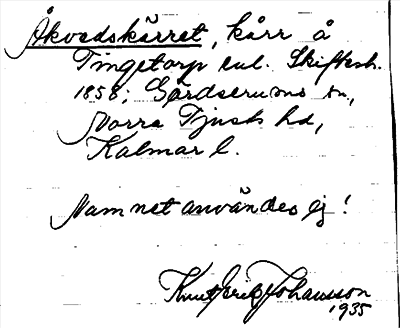 Åkvadskärret, kärr å
Tingetorp enl. Skiftesh.
1858; Gärdserums sn,
Norra Tjust hd,
Kalmar l.
Namnet användes ej!
Knut Erik Johansson
1935